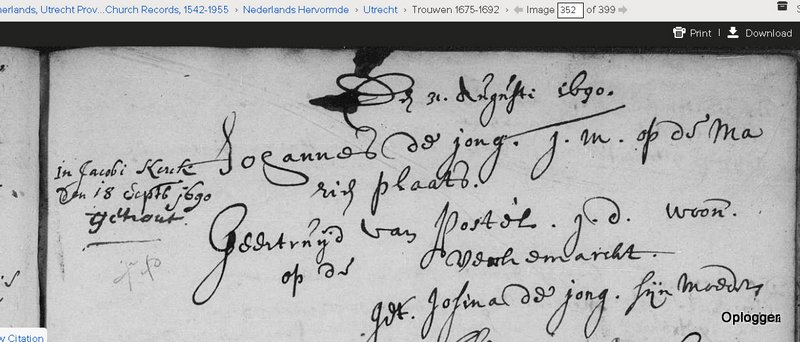 nerlands, Utrecht Prov...Church Records, 1542-1955 › Nederlands Hervormde › Utrecht › Trouwen 1675-1692 › Image 352 of 399
Print | Download
31. Augusti 1690.
Johannes de jong. j. m. op de Ma
rien plaats.
In Jacobi Kerck
den 18 Septb 1690
getrout.
Geertruyd van Postel. j. d. woon.
op de
get. Josina de jong. sijn moeder
Oplogger
w Citation